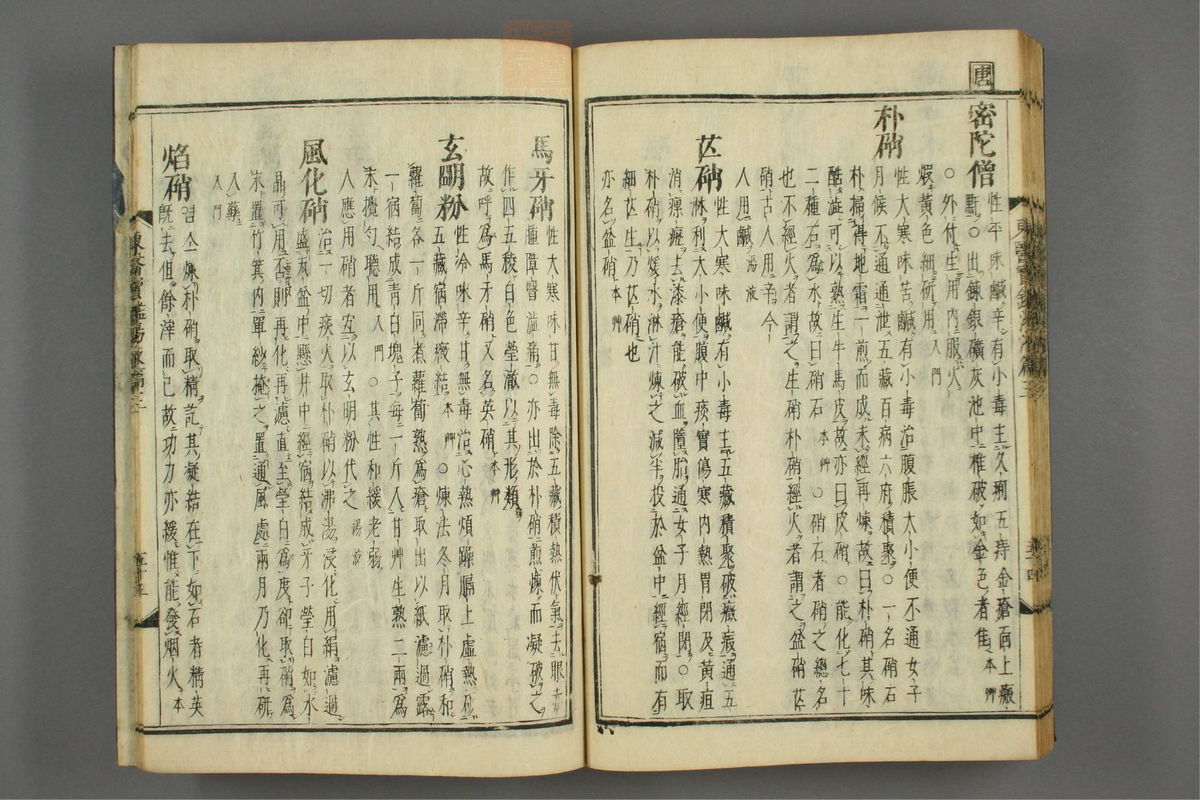 唐
密陀僧
性平味鹹辛有小毒主久痢五痔金瘡面上瘢
䵟○出鍊銀礦灰池中椎破如金色者佳本艸
○外付生用內服火
煅黃色細硏用入門
朴硝
性大寒味苦鹹有小毒治腹脹大小便不通女子
月候不通通泄五藏百病六府積聚○一名硝石
朴掃得地霜一煎而成未經再煉故曰朴硝其味
酷澁可以熟生牛馬皮故亦曰皮硝○能化七十
二種石爲水故曰硝石本艸○硝石者硝之總名
也不經火者謂之生硝朴硝經火者謂之盆硝芒
硝古人用辛今
人用鹹湯液
芒硝
性大寒味鹹有小毒主五藏積聚破癥瘕通五
淋利大小便腹中痰實傷寒內熱胃閉及黃疸
消瘰癧去漆瘡能破血墮胎通女子月經閉○取
朴硝以煖水淋汁煉之減半投於盆中經宿而有
細芒生乃芒硝也
亦名盆硝本艸
馬牙硝
性大寒味甘無毒除五藏積熱伏氣去眼赤
腫障瞖澁痛○亦出於朴硝煎煉而凝破之
作四五稜白色瑩澈以其形類
故呼爲馬牙硝又名英硝本艸
玄明粉
性冷味辛甘無毒治心熱煩躁膈上虛熱破
五藏宿滯癥結本艸○煉法冬月取朴硝和
蘿蔔各一斤同煮蘿蔔熟爲度取出以紙濾過露
一宿結成靑白塊子每一斤入甘艸生熟二兩爲
末攪勻聽用入門○其性和緩老弱
人應用硝者宜以玄明粉代之湯液
風化硝
治一切痰火取朴硝以沸湯浸化用絹濾過
盛瓦盆中懸井中經宿結成牙子瑩白如水
晶可用否則再化再濾直至瑩白爲度却取硝爲
末置竹箕內單紗掩之置通風處兩月乃化再硏
入藥
入門
焰硝
염쵸煉朴硝取精訖其凝結在下如石者精英
旣去但餘滓而已故功力亦緩惟能發烟火本
東醫寶鑑湯液篇三
東醫寶鑑湯液篇三
五十四